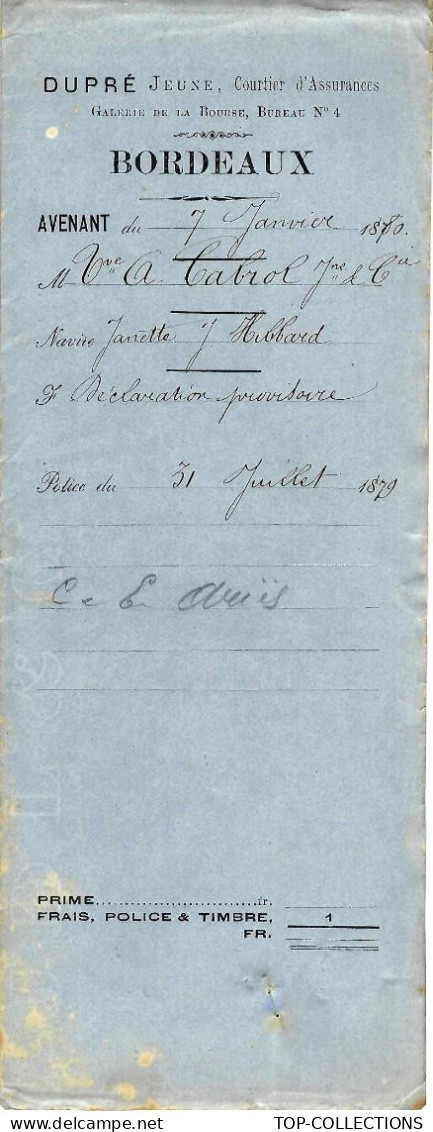 DUPRÉ JEUNE, Courtier d'Assurances
GALERIE DE LA BOURSE, BUREAU N° 4
BORDEAUX
AVENANT du 7 Janvier 1880.
M Vve A. Cabrol Jne & Cie
Navire Janette J Hibbard
F Déclaration provisoire
Police du 31 Juillet 1879
C E
PRIME............................fr.
FRAIS, POLICE & TIMBRE, 1
FR.
TOP-COLLECTIONS